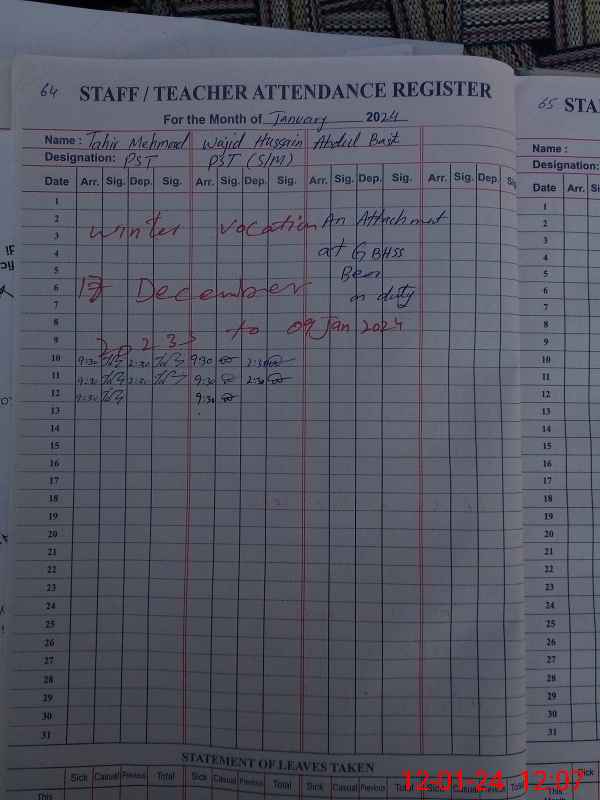 64
STAFF / TEACHER ATTENDANCE REGISTER
For the Month of January 2024
Name : Tahir Mehmood Wajid Hussain Abdul Basit
Designation: PST PST (S/M)
Date Arr. Sig. Dep. Sig. Arr. Sig. Dep. Sig. Arr. Sig. Dep. Sig. Arr. Sig. Dep. Sig.
1
2
winter vocation An Attachment
3
4
at GBHSS
5
Ben
6
17 December on duty
7
8
to 09 Jan 2024
9
2023
10 9:30 2:30 9:30 2:30
11 9:30 2:30 9:30 2:30
12 9:30 9:30
13
14
15
16
17
18
19
20
21
22
23
24
25
26
27
28
29
30
31
STATEMENT OF LEAVES TAKEN
Sick Casual Previous Total Sick Casual Previous Total Sick Casual Previous Total Sick Casual Previous Total
This
65 STA
Name :
Designation:
Date Arr. Si
1
2
3
4
5
6
7
8
9
10
11
12
13
14
15
16
17
18
19
20
21
22
23
24
25
26
27
28
29
30
31
Sick
This
12-01-24 12:07